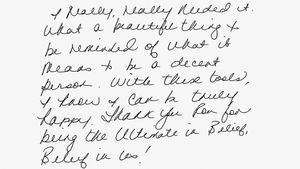 I Really, Really Needed it.
What a beautiful thing to
be reminded of what it
means to be a decent
person. With these tools,
I know I can be truly
happy. Thank You Ron for
being the Ultimate in Belief,
Belief in Us!